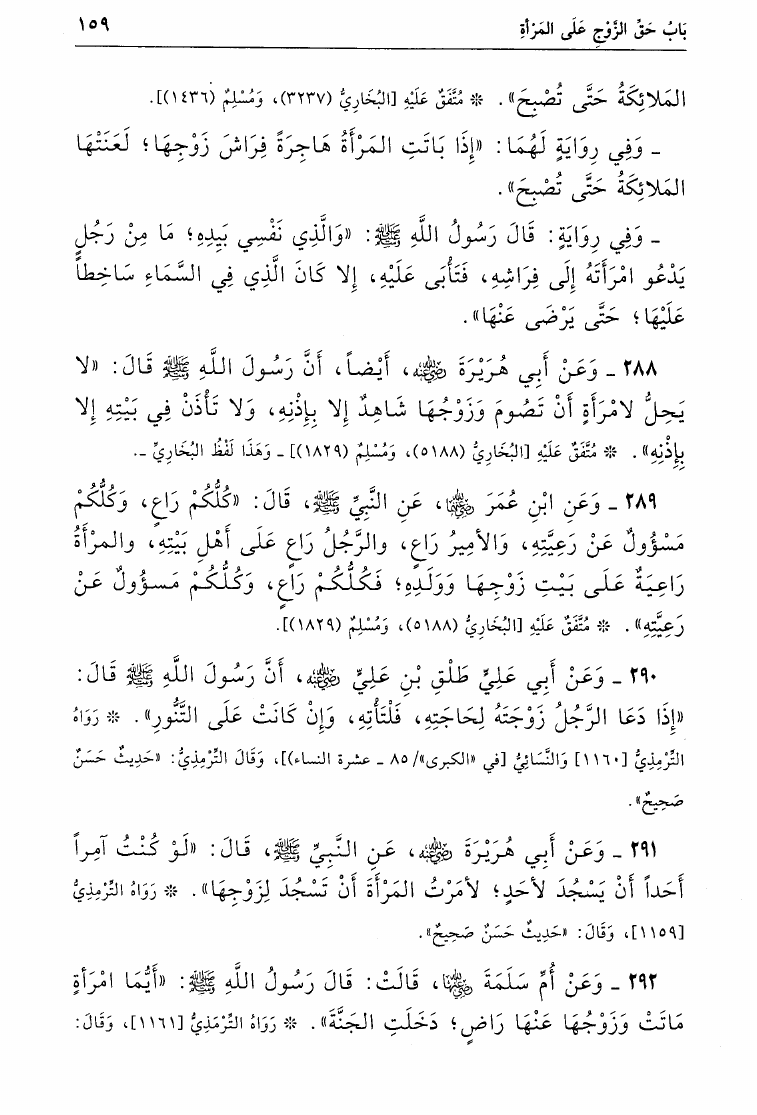 بَابُ حَقِّ الزَّوْجِ عَلَى المَرْأَةِ ١٥٩
المَلائِكَةُ حَتَّى تُصْبِحَ». * مُتَّفَقٌ عَلَيْهِ [البُخَارِيُّ (٣٢٣٧)، وَمُسْلِمٌ (١٤٣٦)].
ـ وَفِي رِوَايَةٍ لَهُمَا: «إِذَا بَاتَتِ المَرْأَةُ هَاجِرَةً فِرَاشَ زَوْجِهَا؛ لَعَنَتْهَا
المَلائِكَةُ حَتَّى تُصْبِحَ».
ـ وَفِي رِوَايَةٍ: قَالَ رَسُولُ اللَّهِ ﷺ: «وَالَّذِي نَفْسِي بِيَدِهِ؛ مَا مِنْ رَجُلٍ
يَدْعُو امْرَأَتَهُ إِلَى فِرَاشِهِ، فَتَأْبَى عَلَيْهِ، إِلا كَانَ الَّذِي فِي السَّمَاءِ سَاخِطاً
عَلَيْهَا؛ حَتَّى يَرْضَى عَنْهَا».
٢٨٨ ـ وَعَنْ أَبِي هُرَيْرَةَ رضي الله عنه، أَيْضاً، أَنَّ رَسُولَ اللَّهِ ﷺ قَالَ: «لا
يَحِلُّ لامْرَأَةٍ أَنْ تَصُومَ وَزَوْجُهَا شَاهِدٌ إِلا بِإِذْنِهِ، وَلا تَأْذَنْ فِي بَيْتِهِ إِلا
بِإِذْنِهِ». * مُتَّفَقٌ عَلَيْهِ [البُخَارِيُّ (٥١٨٨)، وَمُسْلِمٌ (١٨٢٩)] ـ وَهَذَا لَفْظُ البُخَارِيِّ ـ.
٢٨٩ ـ وَعَنِ ابْنِ عُمَرَ رضي الله عنهما، عَنِ النَّبِيِّ ﷺ، قَالَ: «كُلُّكُمْ رَاعٍ، وَكُلُّكُمْ
مَسْؤُولٌ عَنْ رَعِيَّتِهِ، وَالأَمِيرُ رَاعٍ، والرَّجُلُ رَاعٍ عَلَى أَهْلِ بَيْتِهِ، والمرْأَةُ
رَاعِيَةٌ عَلَى بَيْتِ زَوْجِهَا وَوَلَدِهِ؛ فَكُلُّكُمْ رَاعٍ، وَكُلُّكُمْ مَسؤُولٌ عَنْ
رَعِيَّتِهِ». * مُتَّفَقٌ عَلَيْهِ [البُخَارِيُّ (٥١٨٨)، وَمُسْلِمٌ (١٨٢٩)].
٢٩٠ ـ وَعَنْ أَبِي عَلِيٍّ طَلْقِ بْنِ عَلِيٍّ رضي الله عنه، أَنَّ رَسُولَ اللَّهِ ﷺ قَالَ:
«إِذَا دَعَا الرَّجُلُ زَوْجَتَهُ لِحَاجَتِهِ، فَلْتَأْتِهِ، وَإِنْ كَانَتْ عَلَى التَّنُّورِ». * رَوَاهُ
التِّرْمِذِيُّ [١١٦٠] وَالنَّسَائِيُّ [في «الكبرى»/ ٨٥ ـ عشرة النساء)]، وَقَالَ التِّرْمِذِيُّ: «حَدِيثٌ حَسَنٌ
صَحِيحٌ».
٢٩١ ـ وَعَنْ أَبِي هُرَيْرَةَ رضي الله عنه، عَنِ النَّبِيِّ ﷺ، قَالَ: «لَوْ كُنْتُ آمِراً
أَحَداً أَنْ يَسْجُدَ لأَحَدٍ؛ لأَمَرْتُ المَرْأَةَ أَنْ تَسْجُدَ لِزَوْجِهَا». * رَوَاهُ التِّرْمِذِيُّ
[١١٥٩]، وَقَالَ: «حَدِيثٌ حَسَنٌ صَحِيحٌ».
٢٩٢ ـ وَعَنْ أُمِّ سَلَمَةَ رضي الله عنها، قَالَتْ: قَالَ رَسُولُ اللَّهِ ﷺ: «أَيُّمَا امْرَأَةٍ
مَاتَتْ وَزَوْجُهَا عَنْهَا رَاضٍ؛ دَخَلَتِ الجَنَّةَ». * رَوَاهُ التِّرْمَذِيُّ [١١٦١]، وَقَالَ: